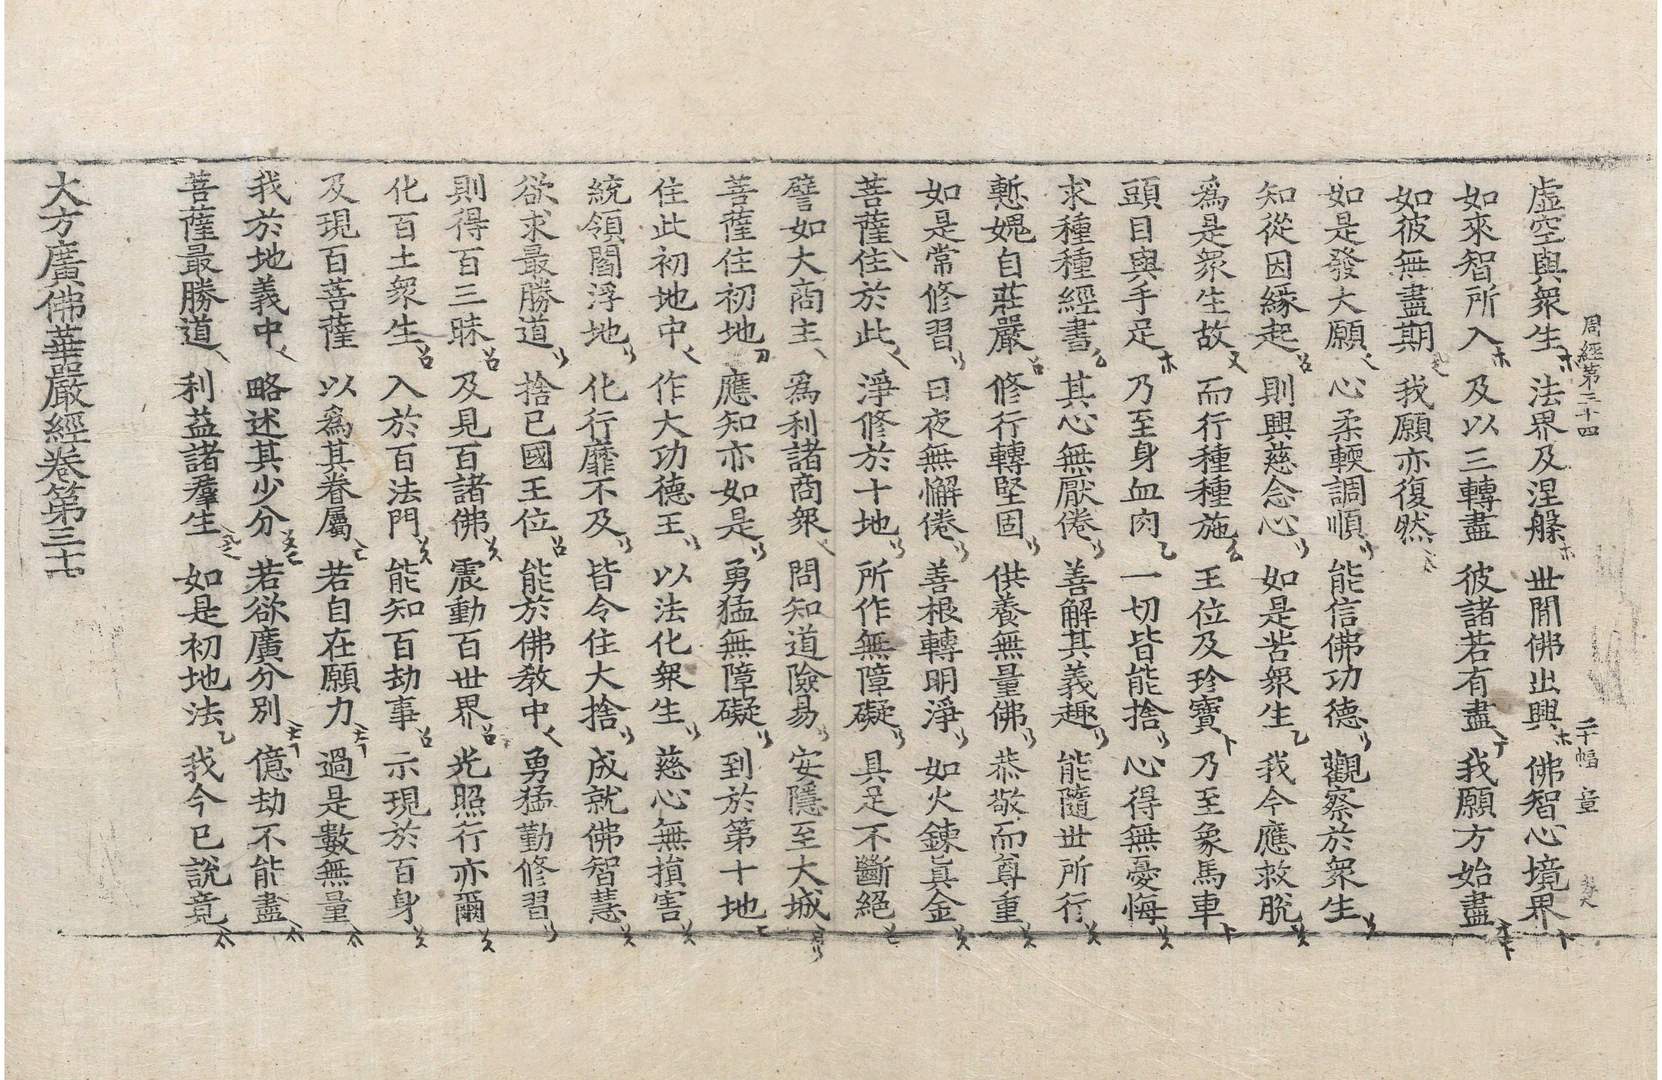 周經第三十四 二十幅 童
虛空與衆生 法界及涅槃 世閒佛出興 佛智心境界
如來智所入 及以三轉盡 彼諸若有盡 我願方始盡
如彼無盡期 我願亦復然
如是發大願 心柔輭調順 能信佛功德 觀察於衆生
知從因緣起 則興慈念心 如是苦衆生 我今應救脫
爲是衆生故 而行種種施 王位及珍寶 乃至象馬車
頭目與手足 乃至身血肉 一切皆能捨 心得無憂悔
求種種經書 其心無厭倦 善解其義趣 能隨世所行
慙媿自莊嚴 修行轉堅固 供養無量佛 恭敬而尊重
如是常修習 日夜無懈倦 善根轉明淨 如火鍊眞金
菩薩住於此 淨修於十地 所作無障礙 具足不斷絕
譬如大商主 爲利諸商衆 問知道險易 安隱至大城
菩薩住初地 應知亦如是 勇猛無障礙 到於第十地
住此初地中 作大功德王 以法化衆生 慈心無損害
統領閻浮地 化行靡不及 皆令住大捨 成就佛智慧
欲求最勝道 捨已國王位 能於佛敎中 勇猛勤修習
則得百三昧 及見百諸佛 震動百世界 光照行亦爾
化百土衆生 入於百法門 能知百劫事 示現於百身
及現百菩薩 以爲其眷屬 若自在願力 過是數無量
我於地義中 略述其少分 若欲廣分別 億劫不能盡
菩薩最勝道 利益諸羣生 如是初地法 我今已說竟
大方廣佛華嚴經卷第三十四